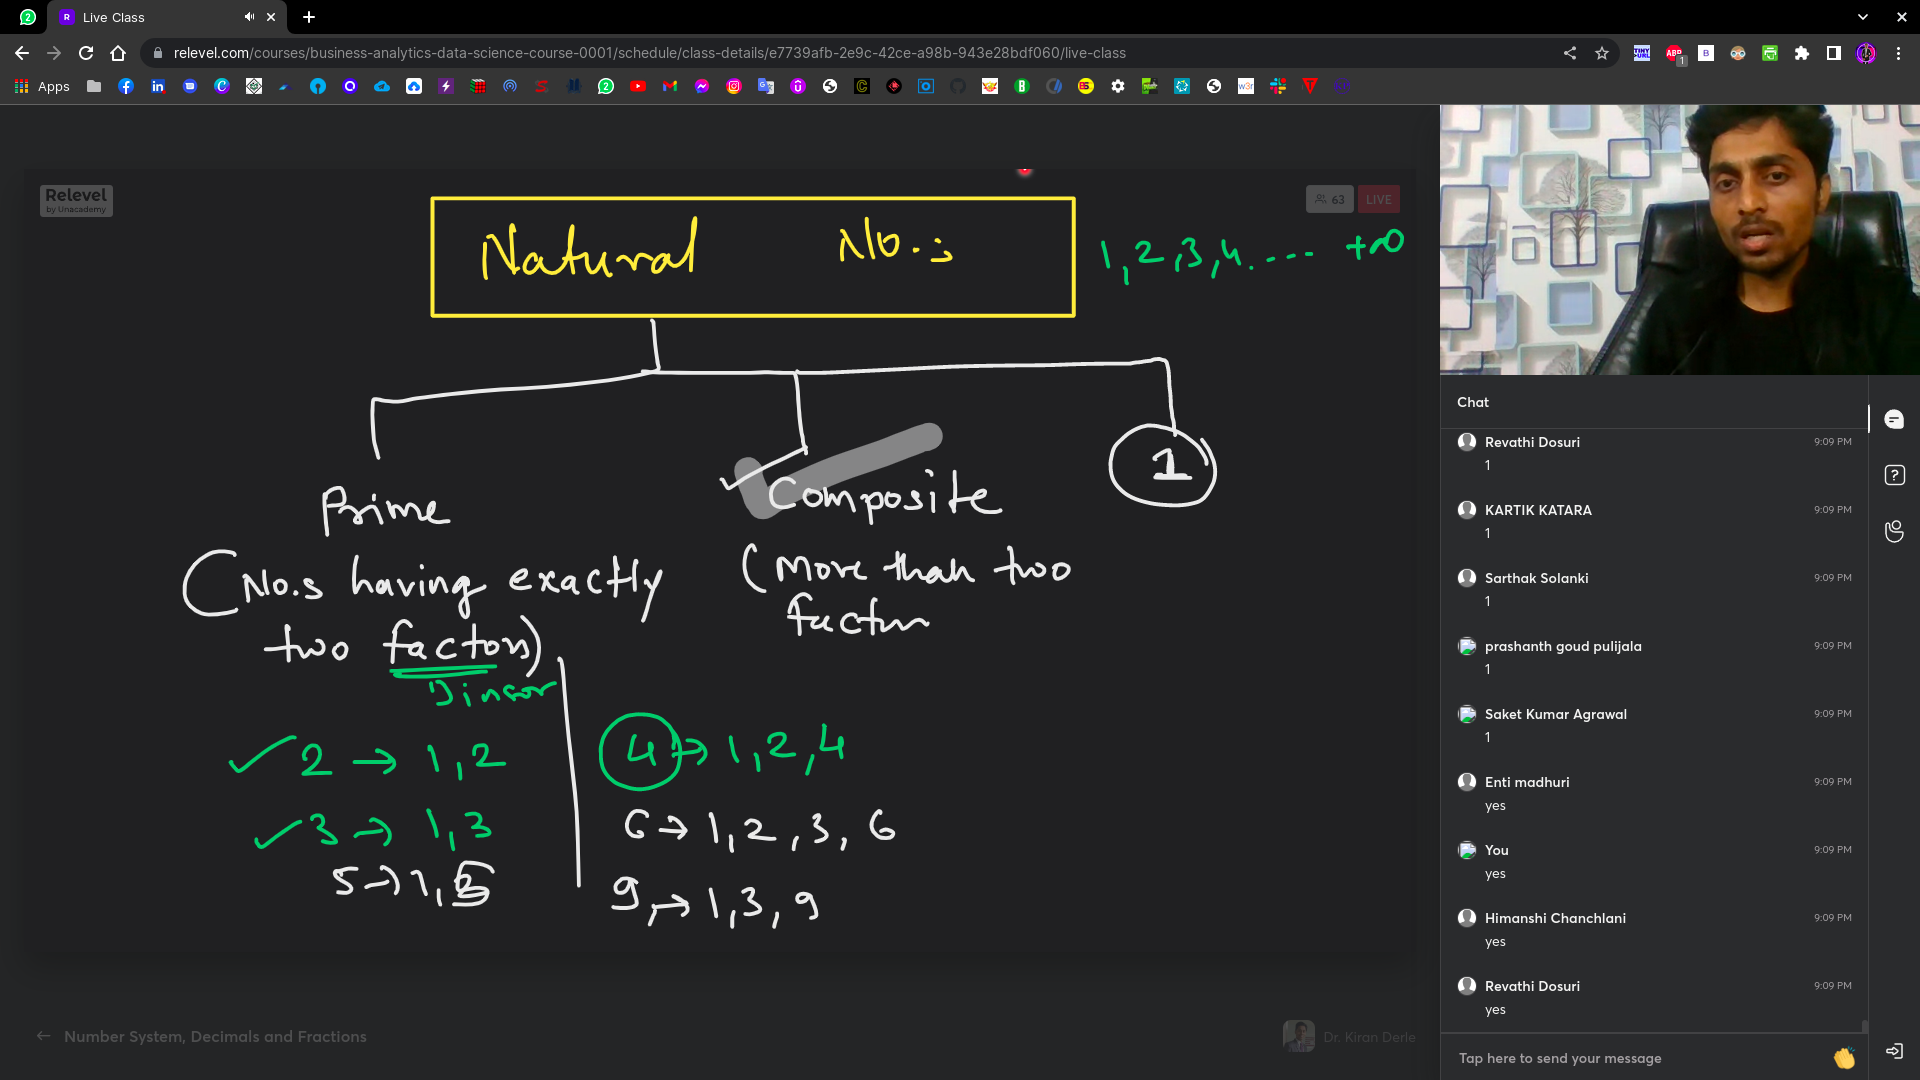 2
R Live Class
relevel.com/courses/business-analytics-data-science-course-0001/schedule/class-details/e7739afb-2e9c-42ce-a98b-943e28bdf060/live-class
Apps
Relevel
by Unacademy
63
LIVE
Natural No.s
1, 2, 3, 4, .... +∞
Prime
Composite
1
(No.s having exactly
two factors)
Divisor
(More than two
factors
2 → 1, 2
3 → 1, 3
5 → 1, 5
4 → 1, 2, 4
6 → 1, 2, 3, 6
9, → 1, 3, 9
Number System, Decimals and Fractions
Dr. Kiran Derle
Chat
Revathi Dosuri 9:09 PM
1
KARTIK KATARA 9:09 PM
1
Sarthak Solanki 9:09 PM
1
prashanth goud pulijala 9:09 PM
1
Saket Kumar Agrawal 9:09 PM
1
Enti madhuri 9:09 PM
yes
You 9:09 PM
yes
Himanshi Chanchlani 9:09 PM
yes
Revathi Dosuri 9:09 PM
yes
Tap here to send your message